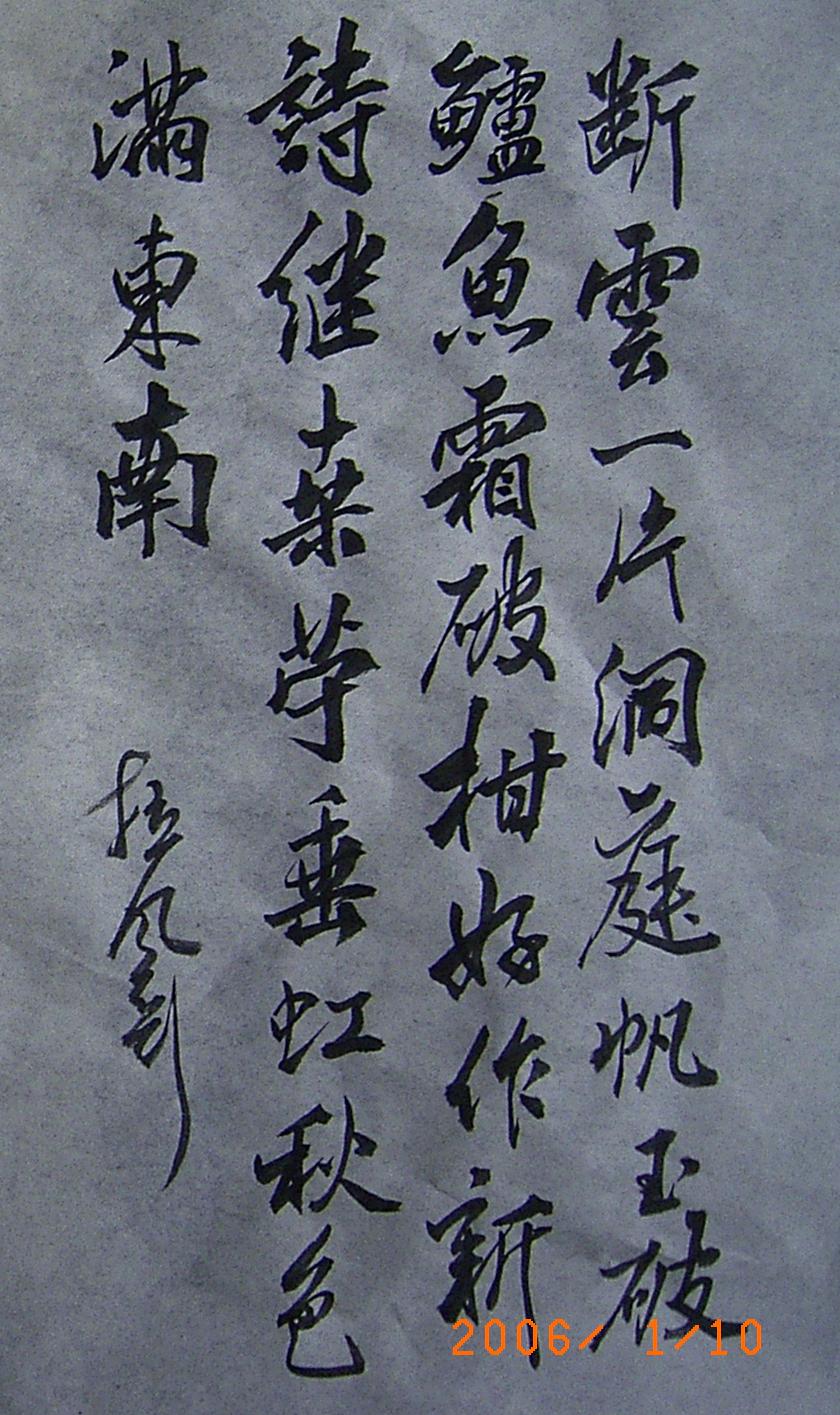 断雲一片洞庭帆玉破
鱸魚霜破柑好作新
詩継桒苧垂虹秋色
滿東南
2006/ 1/10